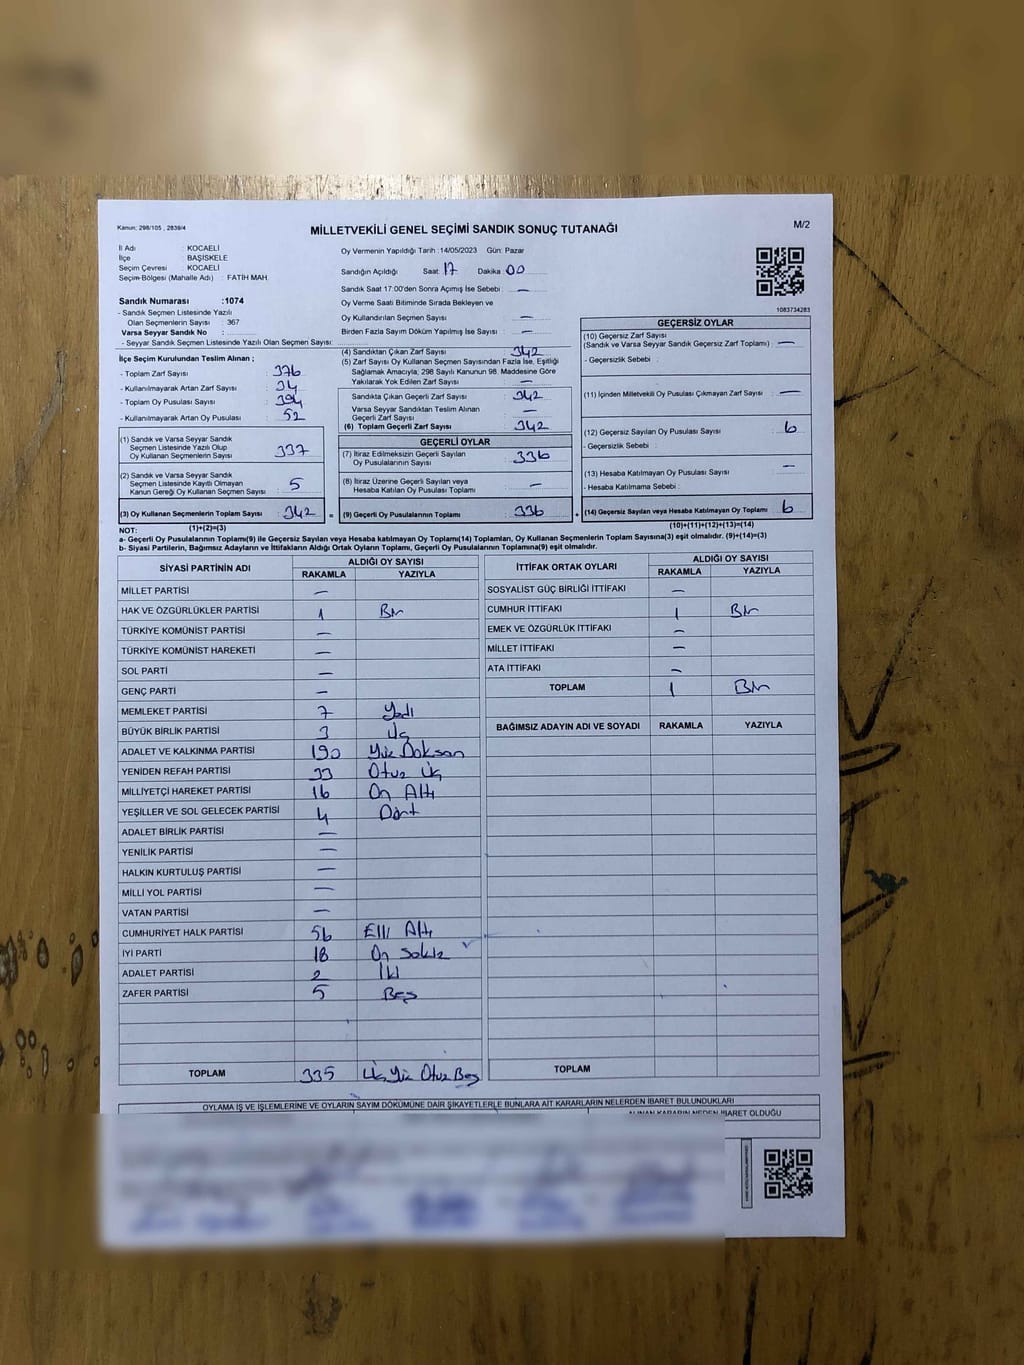 Kanun; 298/105 , 2839/4
MİLLETVEKİLİ GENEL SEÇİMİ SANDIK SONUÇ TUTANAĞI
M/2
İl Adı : KOCAELİ
İlçe : BAŞİSKELE
Seçim Çevresi : KOCAELİ
Seçim Bölgesi (Mahalle Adı) : FATİH MAH.
Sandık Numarası :1074
- Sandık Seçmen Listesinde Yazılı
Olan Seçmenlerin Sayısı : 367
Varsa Seyyar Sandık No :
- Seyyar Sandık Seçmen Listesinde Yazılı Olan Seçmen Sayısı:
Oy Vermenin Yapıldığı Tarih :14/05/2023 Gün: Pazar
Sandığın Açıldığı Saat: 17 Dakika : 00
Sandık Saat 17:00'den Sonra Açımış İse Sebebi : —
Oy Verme Saati Bitiminde Sırada Bekleyen ve
Oy Kullandırılan Seçmen Sayısı : —
Birden Fazla Sayım Döküm Yapılmış İse Sayısı : —
1083734283
İlçe Seçim Kurulundan Teslim Alınan ;
- Toplam Zarf Sayısı : 376
- Kullanılmayarak Artan Zarf Sayısı : 34
- Toplam Oy Pusulası Sayısı : 394
- Kullanılmayarak Artan Oy Pusulası : 52
(1) Sandık ve Varsa Seyyar Sandık
Seçmen Listesinde Yazılı Olup
Oy Kullanan Seçmenlerin Sayısı : 337
(2) Sandık ve Varsa Seyyar Sandık
Seçmen Listesinde Kayıtlı Olmayan
Kanun Gereği Oy Kullanan Seçmen Sayısı : 5
(3) Oy Kullanan Seçmenlerin Toplam Sayısı : 342
(1)+(2)=(3)
(4) Sandıktan Çıkan Zarf Sayısı : 342
(5) Zarf Sayısı Oy Kullanan Seçmen Sayısından Fazla İse, Eşitliği
Sağlamak Amacıyla; 298 Sayılı Kanunun 98. Maddesine Göre
Yakılarak Yok Edilen Zarf Sayısı : —
Sandıkta Çıkan Geçerli Zarf Sayısı : 342
Varsa Seyyar Sandıktan Teslim Alınan
Geçerli Zarf Sayısı : —
(6) Toplam Geçerli Zarf Sayısı : 342
GEÇERLİ OYLAR
(7) İtiraz Edilmeksizin Geçerli Sayılan
Oy Pusulalarının Sayısı : 336
(8) İtiraz Üzerine Geçerli Sayılan veya
Hesaba Katılan Oy Pusulası Toplamı : —
= (9) Geçerli Oy Pusulalarının Toplamı : 336
GEÇERSİZ OYLAR
(10) Geçersiz Zarf Sayısı
(Sandık ve Varsa Seyyar Sandık Geçersiz Zarf Toplamı) : —
- Geçersizlik Sebebi :
(11) İçinden Milletvekili Oy Pusulası Çıkmayan Zarf Sayısı : —
(12) Geçersiz Sayılan Oy Pusulası Sayısı : 6
- Geçersizlik Sebebi :
(13) Hesaba Katılmayan Oy Pusulası Sayısı : —
- Hesaba Katılmama Sebebi :
+ (14) Geçersiz Sayılan veya Hesaba Katılmayan Oy Toplamı : 6
(10)+(11)+(12)+(13)=(14)
NOT:
a- Geçerli Oy Pusulalarının Toplamı(9) ile Geçersiz Sayılan veya Hesaba Katılmayan Oy Toplamı(14) Toplamları, Oy Kullanan Seçmenlerin Toplam Sayısına(3) eşit olmalıdır. (9)+(14)=(3)
b- Siyasi Partilerin, Bağımsız Adayların ve İttifakların Aldığı Ortak Oyların Toplamı, Geçerli Oy Pusulalarının Toplamına(9) eşit olmalıdır.
SİYASİ PARTİNİN ADI ALDIĞI OY SAYISI
RAKAMLA YAZIYLA
MİLLET PARTİSİ —
HAK VE ÖZGÜRLÜKLER PARTİSİ 1 Bir
TÜRKİYE KOMÜNİST PARTİSİ —
TÜRKİYE KOMÜNİST HAREKETİ —
SOL PARTİ —
GENÇ PARTİ —
MEMLEKET PARTİSİ 7 Yedi
BÜYÜK BİRLİK PARTİSİ 3 Üç
ADALET VE KALKINMA PARTİSİ 190 Yüz Doksan
YENİDEN REFAH PARTİSİ 33 Otuz Üç
MİLLİYETÇİ HAREKET PARTİSİ 16 On Altı
YEŞİLLER VE SOL GELECEK PARTİSİ 4 Dört
ADALET BİRLİK PARTİSİ —
YENİLİK PARTİSİ —
HALKIN KURTULUŞ PARTİSİ —
MİLLİ YOL PARTİSİ —
VATAN PARTİSİ —
CUMHURİYET HALK PARTİSİ 56 Elli Altı
İYİ PARTİ 18 On Sekiz
ADALET PARTİSİ 2 İki
ZAFER PARTİSİ 5 Beş
TOPLAM 335 Üç Yüz Otuz Beş
İTTİFAK ORTAK OYLARI ALDIĞI OY SAYISI
RAKAMLA YAZIYLA
SOSYALİST GÜÇ BİRLİĞİ İTTİFAKI —
CUMHUR İTTİFAKI 1 Bir
EMEK VE ÖZGÜRLÜK İTTİFAKI —
MİLLET İTTİFAKI —
ATA İTTİFAKI —
TOPLAM 1 Bir
BAĞIMSIZ ADAYIN ADI VE SOYADI RAKAMLA YAZIYLA
TOPLAM
OYLAMA İŞ VE İŞLEMLERİNE VE OYLARIN SAYIM DÖKÜMÜNE DAİR ŞİKAYETLERLE BUNLARA AİT KARARLARIN NELERDEN İBARET BULUNDUKLARI
ALINAN KARARIN NEDEN İBARET OLDUĞU